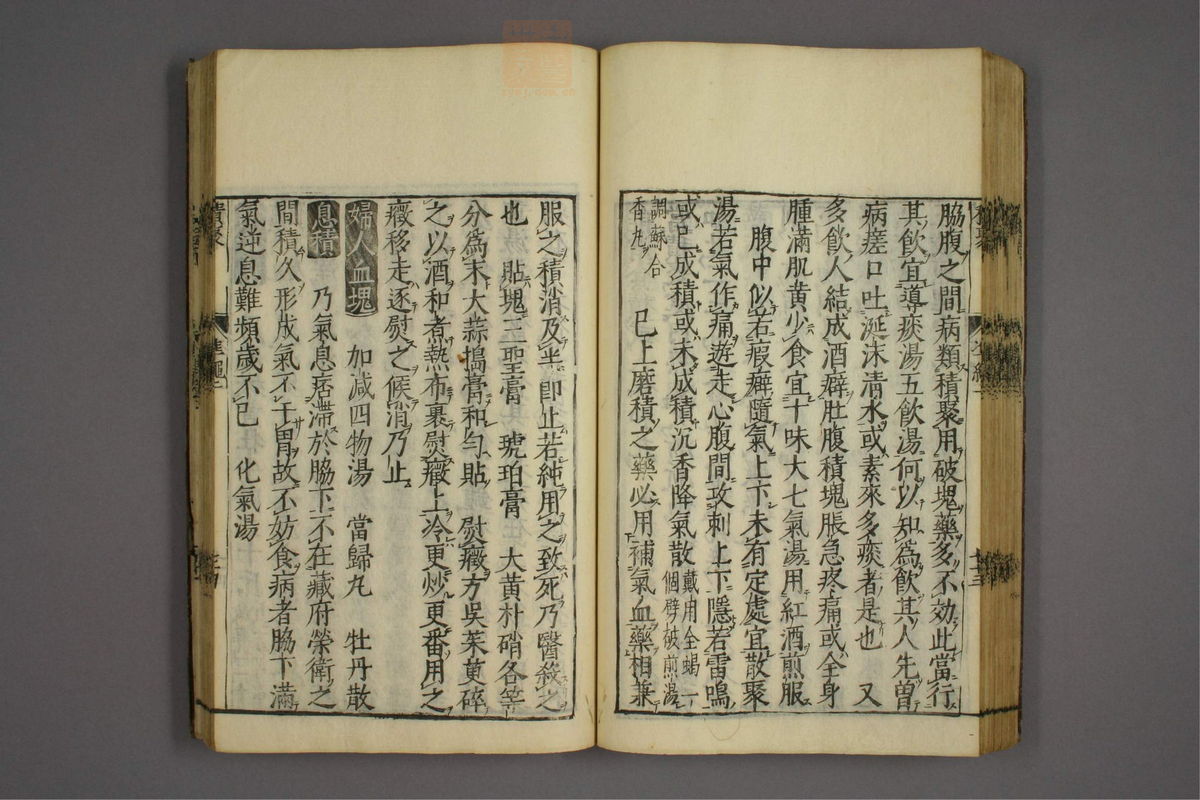 脇腹之間病類積聚用破塊藥多不効此當行
其飲宜導痰湯五飲湯何以知為飲其人先曽
病瘥口吐涎沫清水或素來多痰者是也　又
多飲人結成酒癖肚腹積塊脹急疼痛或全身
腫滿肌黄少食宜十味大七氣湯用紅酒煎服
腹中似若瘕癖隨氣上下未有定處宜散聚
湯若氣作痛遊走心腹間攻刺上下隱若雷鳴
或已成積或未成積沉香降氣散戴用全蝎一
個劈破煎湯
調蘇合
香丸　已上磨積之藥必用補氣血藥相兼
服之積消及半即止若純用之致死乃醫殺之
也　貼塊三聖膏　琥珀膏　大黄朴硝各等
分為末大蒜搗膏和勻貼　熨癥方吳茱萸碎
之以酒和煮熱布裹熨癥上冷更炒更番用之
癥移走逐熨之候消乃止
婦人血塊　加減四物湯　當歸丸　牡丹散
息積　乃氣息痞滯於脇下不在藏府榮衛之
間積久形成氣不干胃故不妨食病者脇下滿
氣逆息難頻歲不已　化氣湯